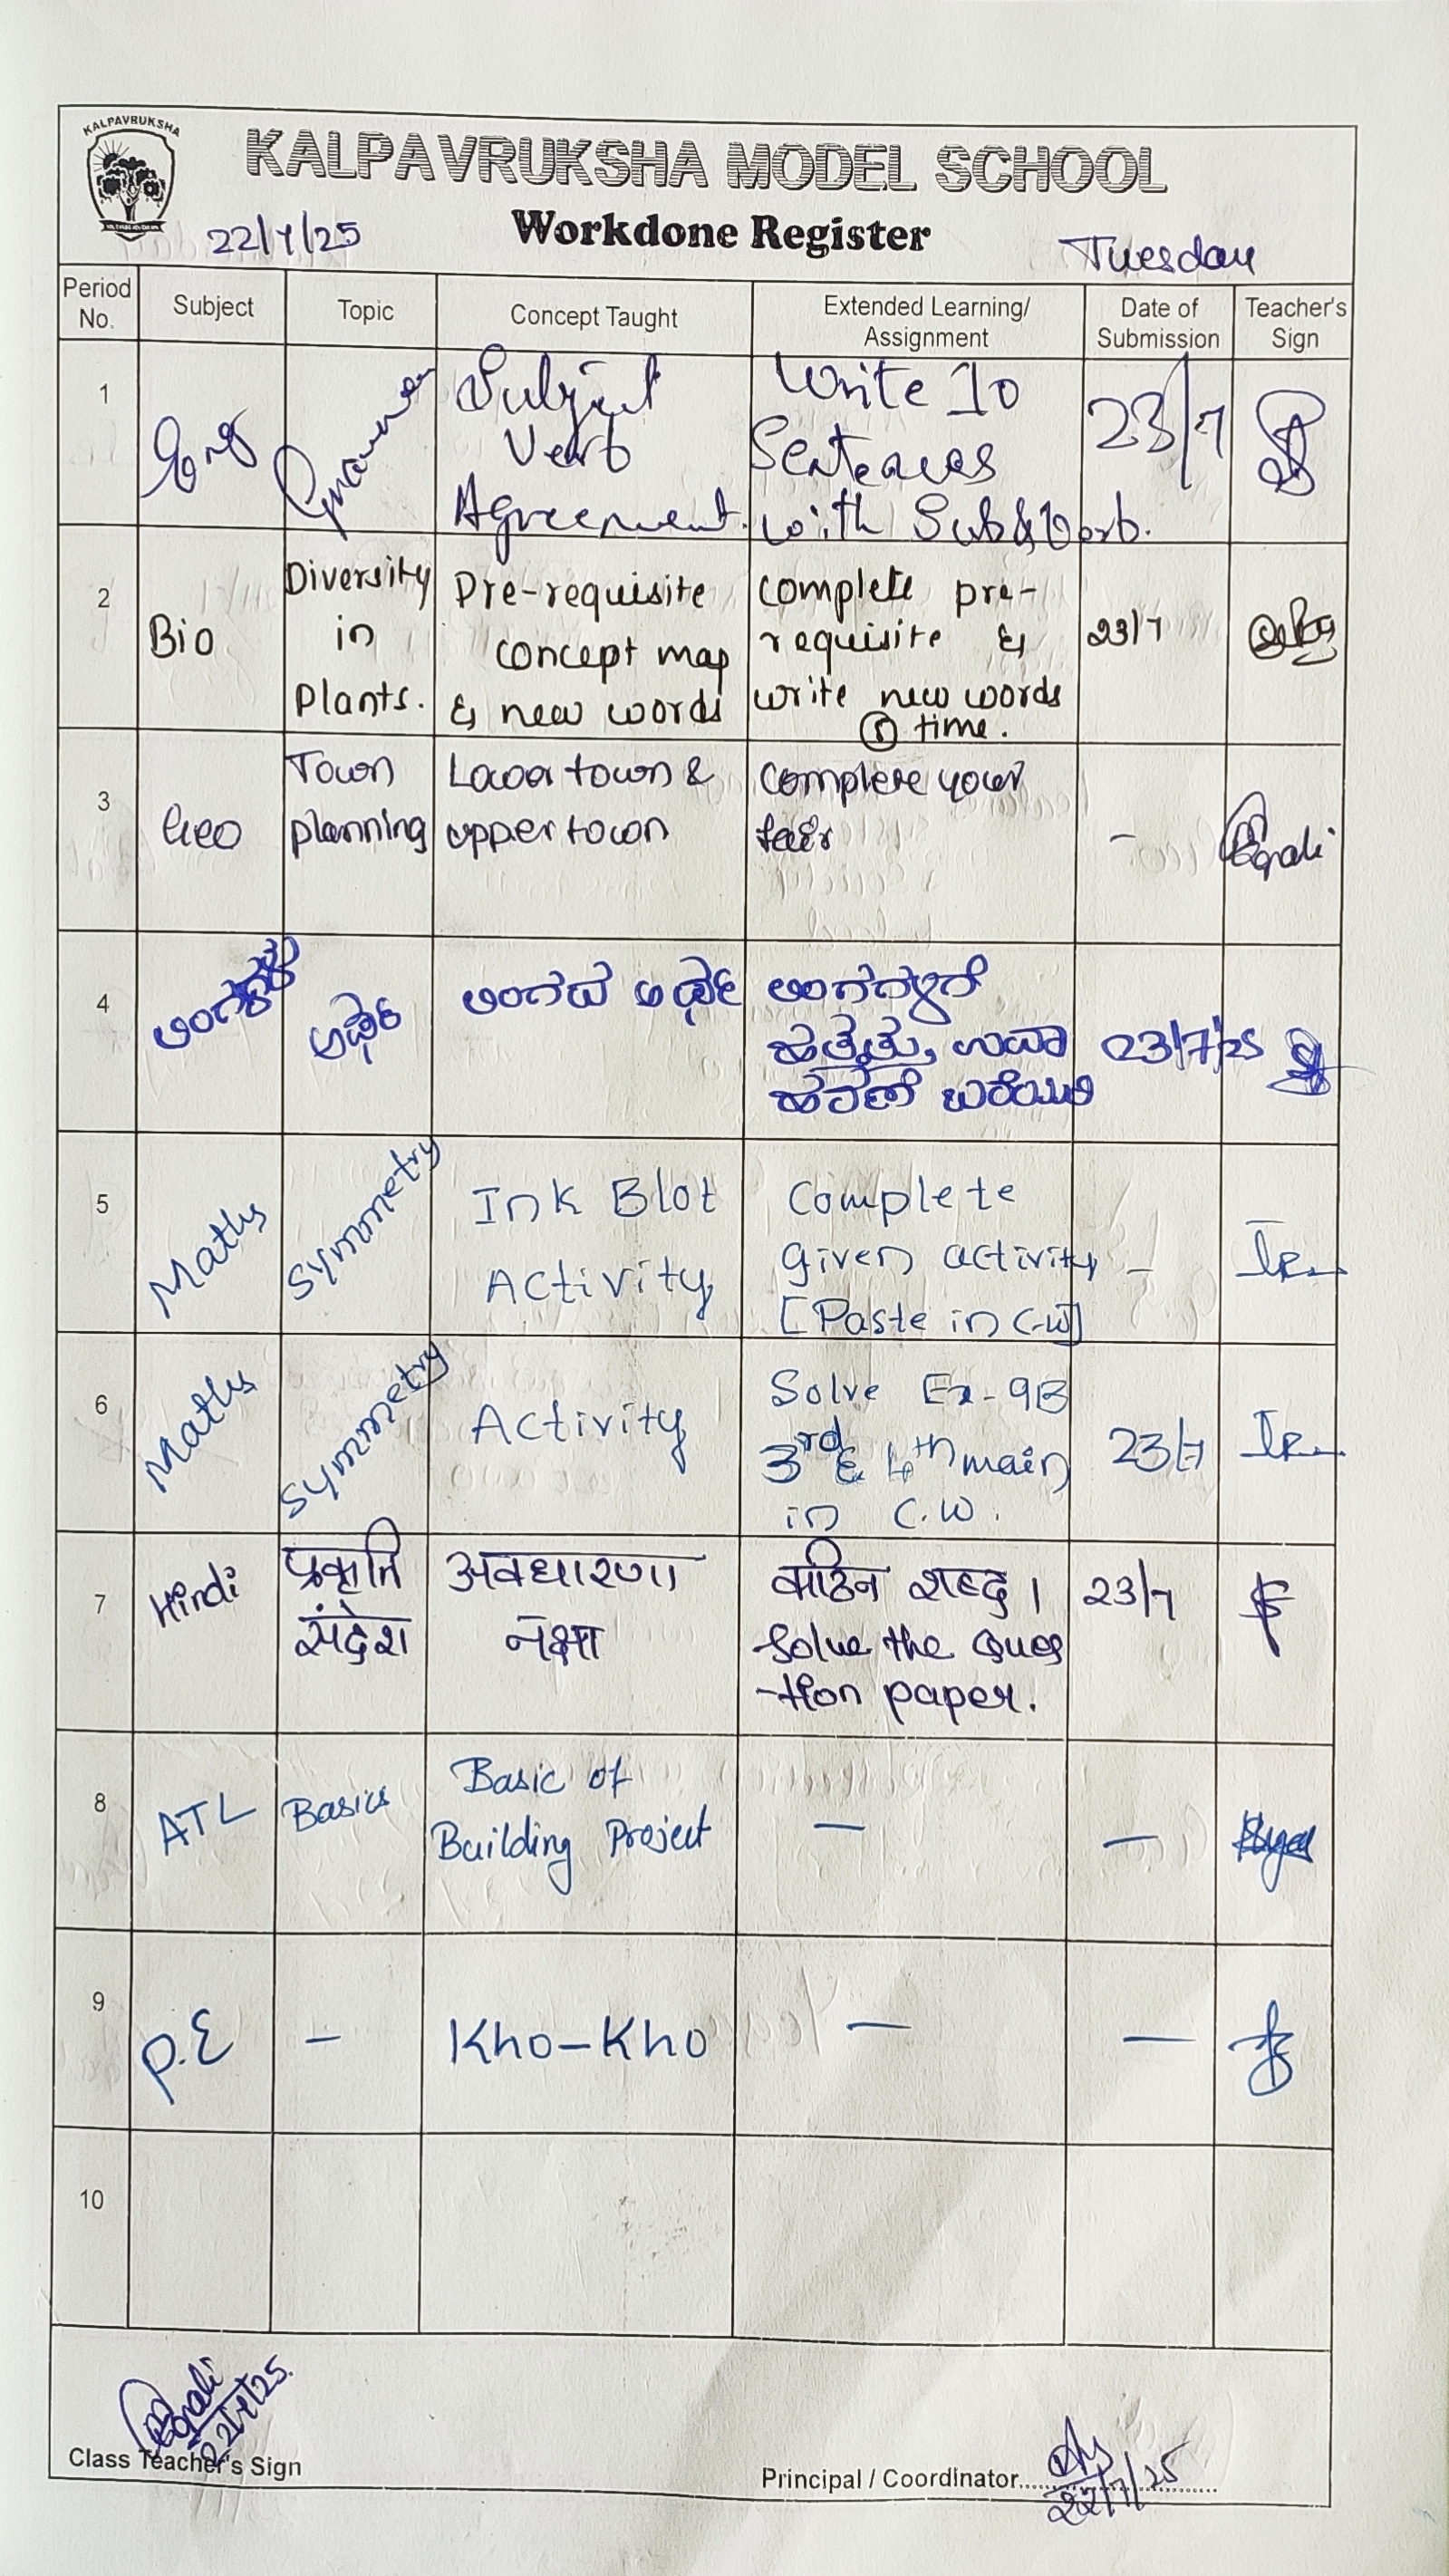 KALPAVRUKSHA
KALPAVRUKSHA MODEL SCHOOL
Workdone Register
22/7/25
Tuesday
Period No.
Subject
Topic
Concept Taught
Extended Learning/
Assignment
Date of
Submission
Teacher's
Sign
1
Eng
Grammar
Subject
Verb
Agreement.
Write 10
Sentences
with Sub & Verb.
23/7
2
Bio
Diversity
in
Plants.
Pre-requisite
concept map
& new words
complete pre-
requisite &
write new words
⑤ time.
23/7
3
Geo
Town
planning
Lower town &
upper town
Complete your
fair
-
4
ಲಿಂಗದ ಅರ್ಥ
23/7/25
5
Maths
Symmetry
Ink Blot
Activity
Complete
given activity
[Paste in C.W]
-
6
Maths
Symmetry
Activity
Solve Ex-9B
3rd & 4th main
in C.W.
23/7
7
Hindi
प्रकृति
संदेश
अवधारणा
नक्षा
कठिन शब्द ।
Solve the Ques
-tion paper.
23/7
8
ATL
Basics
Basic of
Building Project
—
—
9
P.E
-
Kho-Kho
—
—
10
22/7/25.
Class Teacher's Sign
Principal / Coordinator
22/7/25